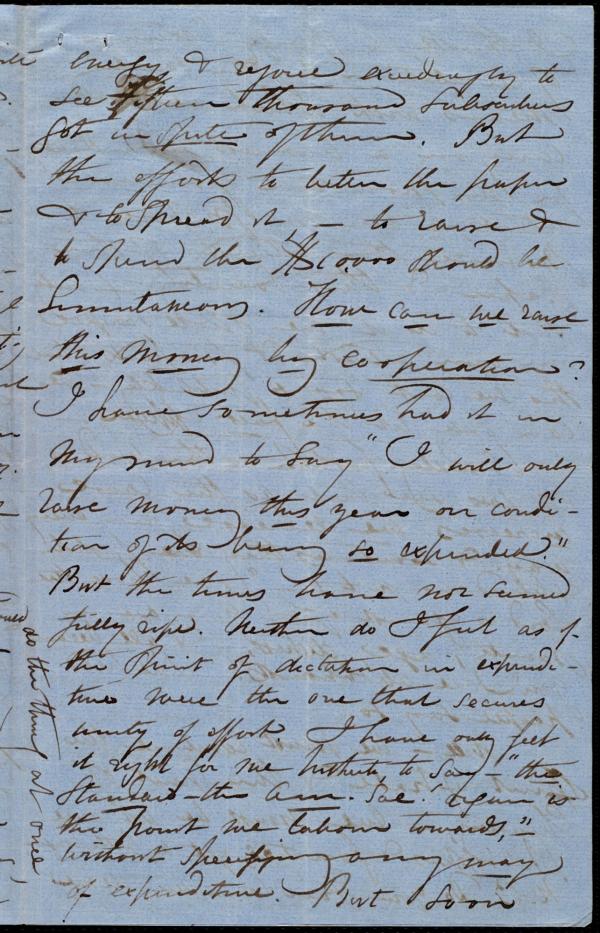 energy & rejoice exceedingly to
see fifteen thousand subscribers
got in spite of them. But
the efforts to better the paper
& to spread it, – to raise &
to spend the $10,000 should be
Simultaneous. How can we raise
this money by cooperation?
I have sometimes had it in
my mind to say "I will only
raise money this year on condi-
tion of its being so expended."
But the times have not seemed
fully ripe. Neither do I feel as if
the spirit of dictation in expendi-
ture were the one that secures
unity of effort. I have only felt
it right for me hitherto, to say – "the
Standard – the Am. Soc.' organ is
the point we labour towards," –
without specifying any way
of expenditure. But soon
do the thing at once